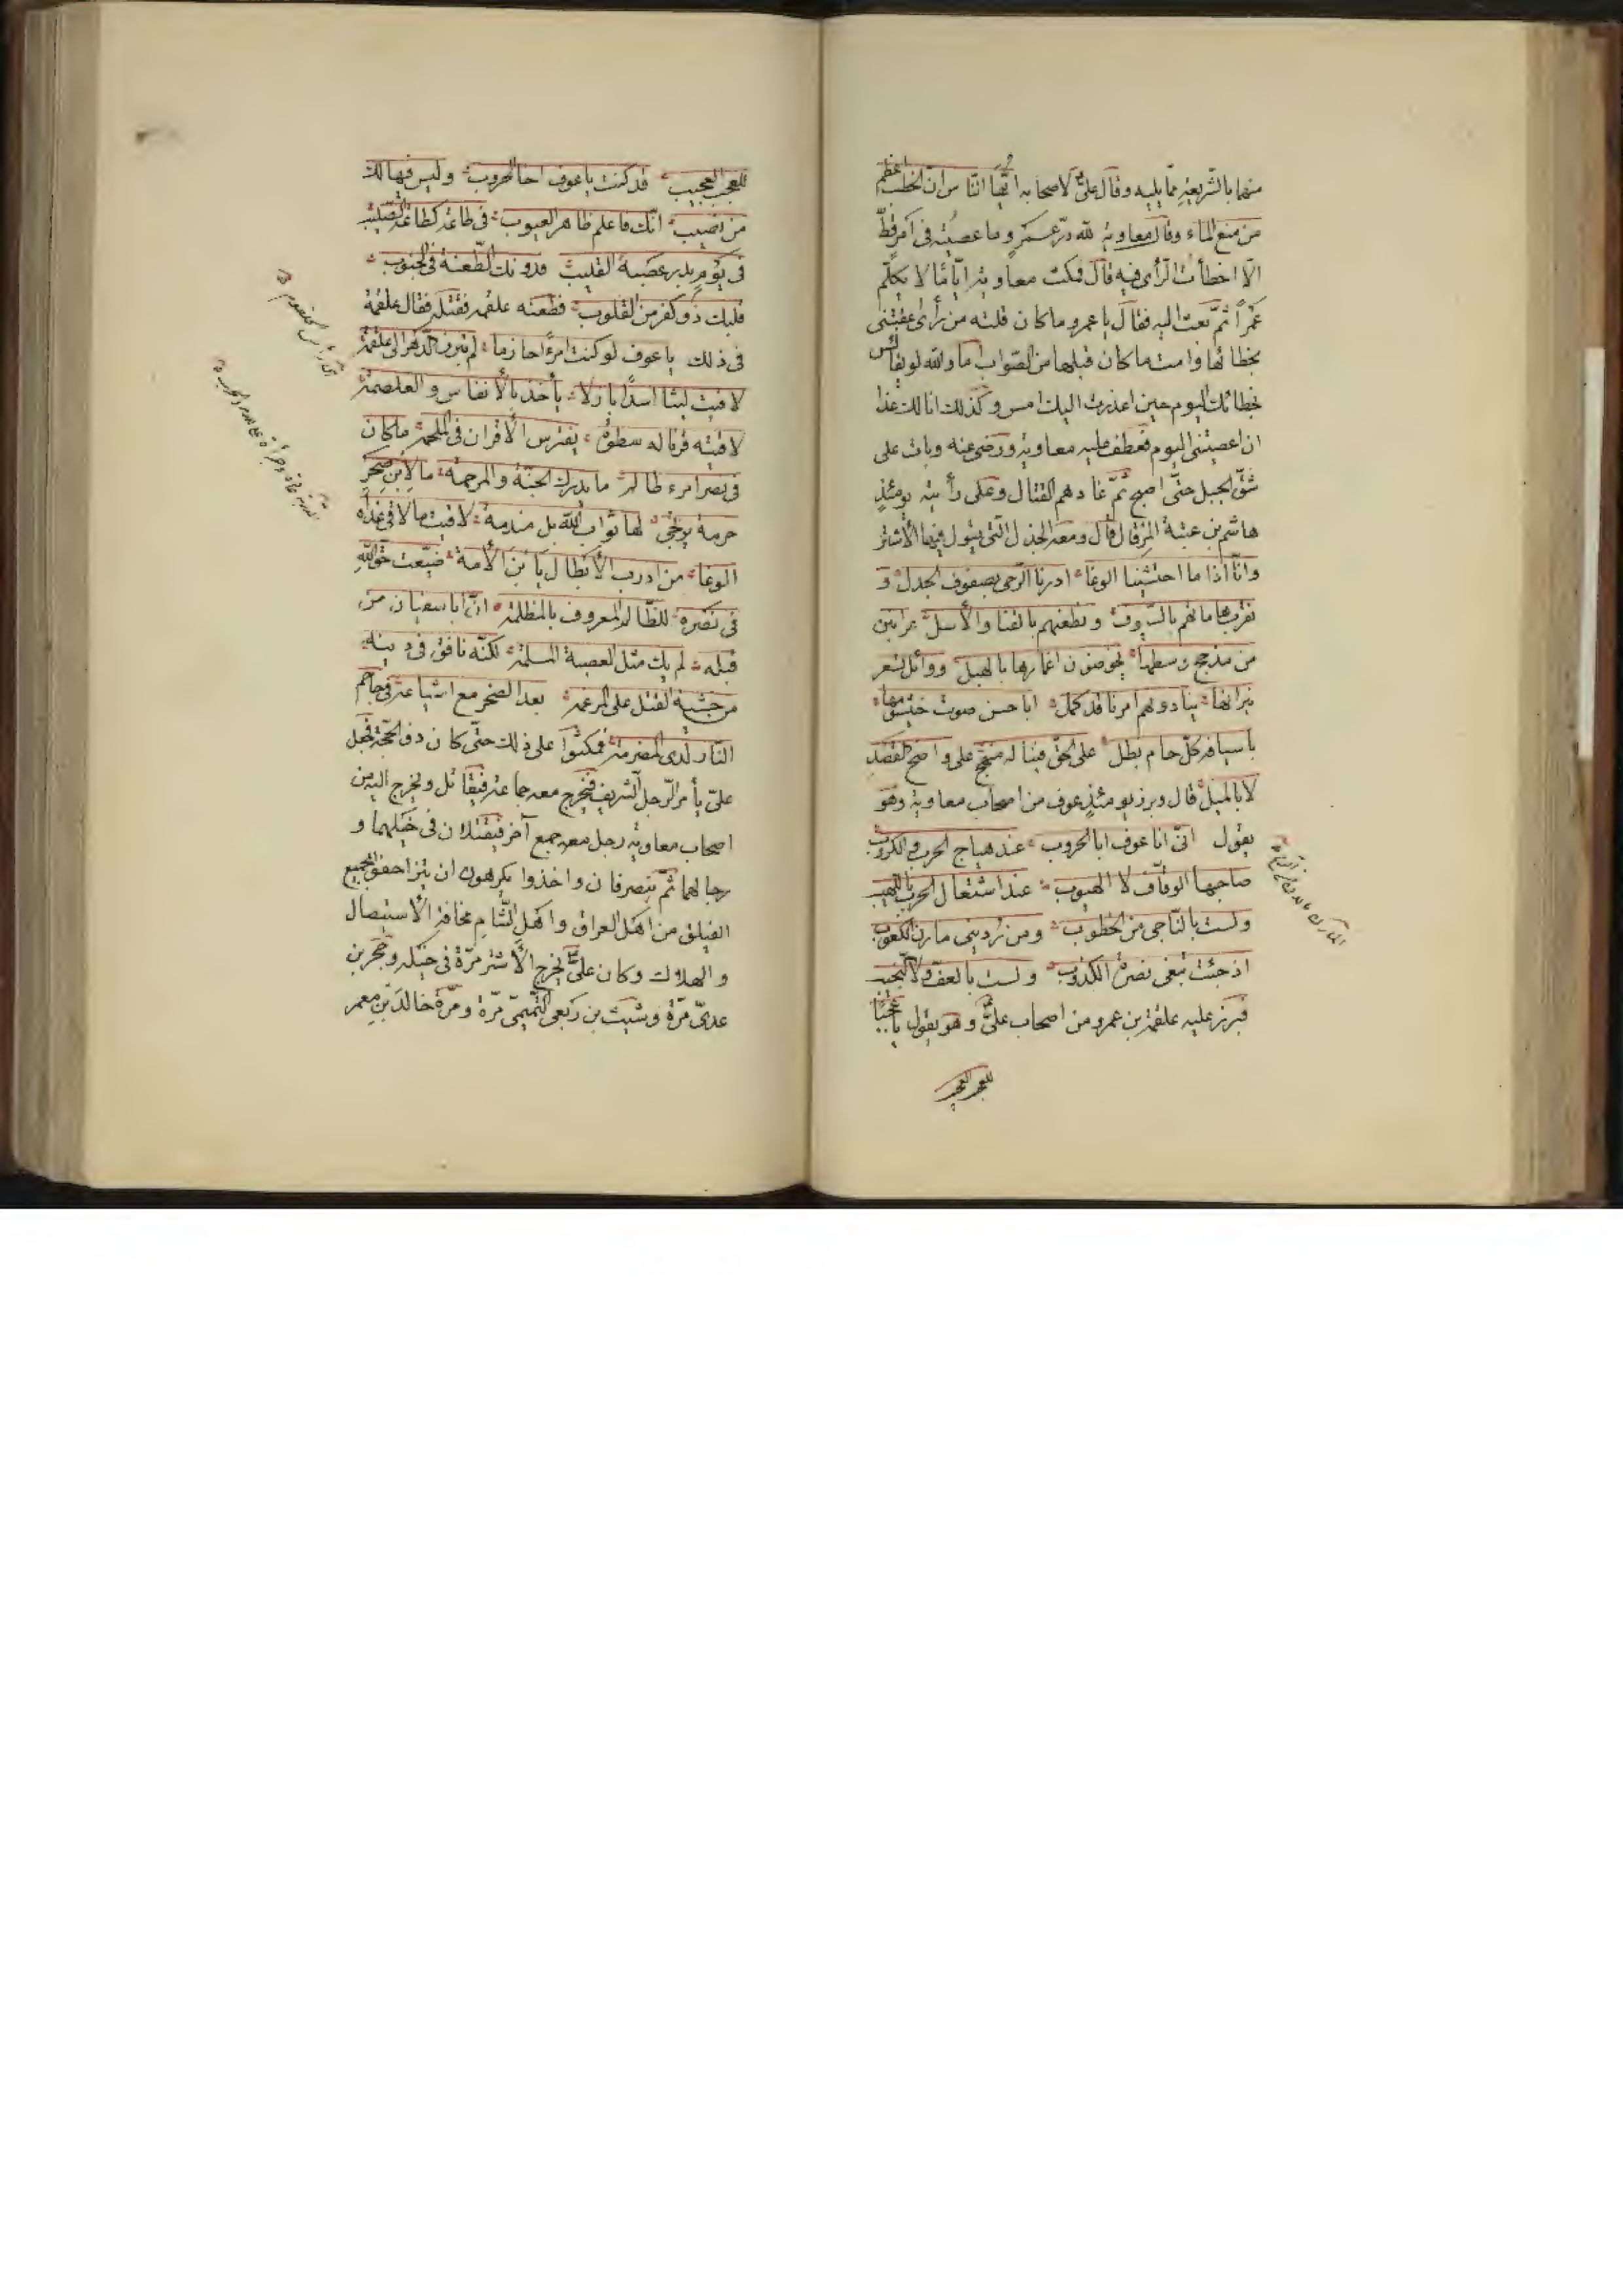 منهما بالشريعة مما يليه وقال علىّ لاصحابه ايّها النّاس انّ الخطب اعظم
من منع الماء وقال معاوية لله درّ عمرو ما عصيته فى امر قطّ
الّا اخطأت الرّأى فيه قال فمكث معاوية ايّامًا لا يكلّم
عمرًا ثمّ بعث اليه فقال يا عمرو ما كان فلتة من رأى عقبتنى
بخطائها وامت ما كان قبلها من الصّواب اما والله لو يقاس
بخطائك اليوم حين اعذرت اليك امس وكذلك انا لك غدا
ان اعصيتنى اليوم فعطف عليه معاوية ورضى عنه وبات على
شقّ الجبل حتّى اصبح ثمّ غاداهم القتال وعلى رأيته يومئذٍ
هاشم بن عتبة المرقال قال ومعه الجدل الّتى يقول فيها الأشتر
وانّا اذا ما احتسبنا الوغا ادرنا الرّحى بصفوف الجدل و
نضرب هاماتهم بالسّيوف ونطعنهم بالقنا والأسل عرانين
من مذحج وسطها يخوضون اغمارها بالهبل ووائل تسعر
نيرانها ينادونهم امرنا قد كمل ابا حسن صوت خيشومها
باسيافه كلّ حام بطل على الحقّ فينا له منهج على واضح القصد
لا بالميل قال وبرز يومئذٍ عوف من اصحاب معاوية وهو
يقول انّى انا عوف ابا الحروب عند هياج الحرب والكروب
صاحبها الوقّاف لا الهيوب عند اشتعال الحرب باللهيب
ولست بالنّاجى من الخطوب ومن ردينى مارن الكعوب
اذ جئت تبغى نصرة الكذوب ولست بالعفّ ولا النّجيب
فبرز عليه علقمة بن عمرو من اصحاب علىّ وهو يقول يا عجبًا
للعجب العجيب
للعجب العجيب قد كنت يا عوف اخا الحروب وليس فيها لك
من نصيب انّك فاعلم ظاهر العيوب فى طاعة كطاعة الصّليب
فى يوم بدر عصبة القليب فدونك الطّعنة فى الجنوب
قلبك ذو كفر من القلوب فطعنه علقمة فقتله فقال علقمة
فى ذلك يا عوف لو كنت امرءًا حازما لم تبرز الدّهر الى علقمة
لاقيت ليثا اسدًا باذلا يأخذ بالأنفاس والغلصمة
لاقيته قرنا له سطوة يفترس الأقران فى الملحمة ما كان
فى نصر امرء ظالم ما يدرك الجنّة والمرحمة ما لابن صخر
حرمة يرتجى لها ثواب الله بل مندمة لاقيت ما لاقى غداة
الوغا من ادرب الأبطال يا ابن الأمة ضيّعت حقّ الله
فى نصرة للظّالم المعروف بالمظلمة انّ ابا سفيان من
قبله لم يك مثل العصبة المسلمة لكنّه نافق فى دينه
من خشية القتل على المرغمة بعد الصخر مع اشياعه فى جاحم
النّار لدى المضرمة فمكثوا على ذلك حتّى كان ذو الحجّة فجعل
علىّ يأمر الرّجل الشّريف فيخرج معه جماعة فيقاتل ويخرج اليه من
اصحاب معاوية رجل معه جمع آخر فيقتتلان فى خيلهما و
رجالهما ثمّ ينصرفان واخذوا يكرهون ان يتزاحفوا بجميع
الفيلق من اهل العراق واهل الشّام مخافة الأستيصال
والهلاك وكان علىّ يخرج الأشتر مرّة فى خيله وحجر بن
عدىّ مرّة وشبث بن ربعى التّميمىّ مرّة ومرّة خالد بن معمر